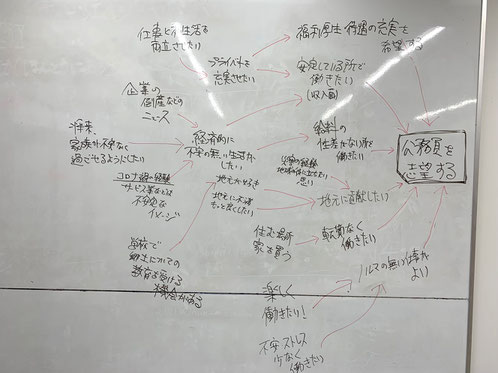 仕事と私生活を
両立させたい
プライベートを
充実させたい
福利厚生・待遇の充実を
希望する
安定している所で
働きたい
(収入面)
企業の
倒産などの
ニュース
将来、
家族が不安なく
過ごせるようにしたい
経済的に
不安の無い生活が
したい
給料の
性差がない所で
働きたい
公務員を
志望する
コロナ禍の経験
サービス業などは
不安定な
イメージ
災害の経験
地域の役に立ちたい
思い
地元が好き
地元に
もっと良くしたい
地元に貢献したい
住む場所
家を買う
転勤なく
働きたい
学校で
郷土についての
教育を受ける
機会がある
楽しく
働きたい!
ノルマの無い仕事が
よい
不安・ストレス
少なく
働きたい